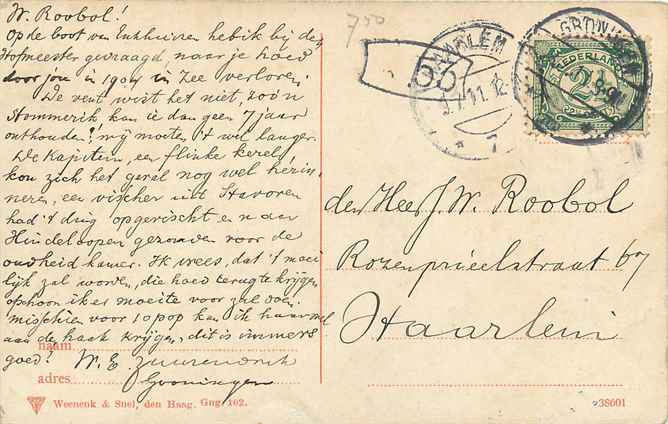 W. Roobol!
Op de boot van Enkhuizen heb ik bij den
Hofmeester gevraagd naar je hoed
door jou in 1904 in Zee verloren.
De vent wist het niet, zoo'n
Stommerik kan ie dan geen 7 jaar
onthouden! wij moeten 't wel langer.
De Kapitein, een flinke kerel,
kon zich het geval nog wel herin-
neren, een visscher uit Stavoren
had 't ding opgevischt en naar
Hindeloopen gezonden voor de
oudheid kamer. Ik vrees, dat 't moei
lijk zal worden, die hoed terug te krijgen
ofschoon ik er moeite voor zal doen.
misschien voor 10 pop kan ik haar nul
aan de haak krijgen, dit is immers
goed!
naam
W. E.
adres Groningen
Weenenk & Snel, den Haag. Gng 102.
750
HAARLEM
11.12
7
GRONINGEN
NEDERLAND
2½
den Heer J. W. Roobol
Rozenprieelstraat 67
Haarlem
38601